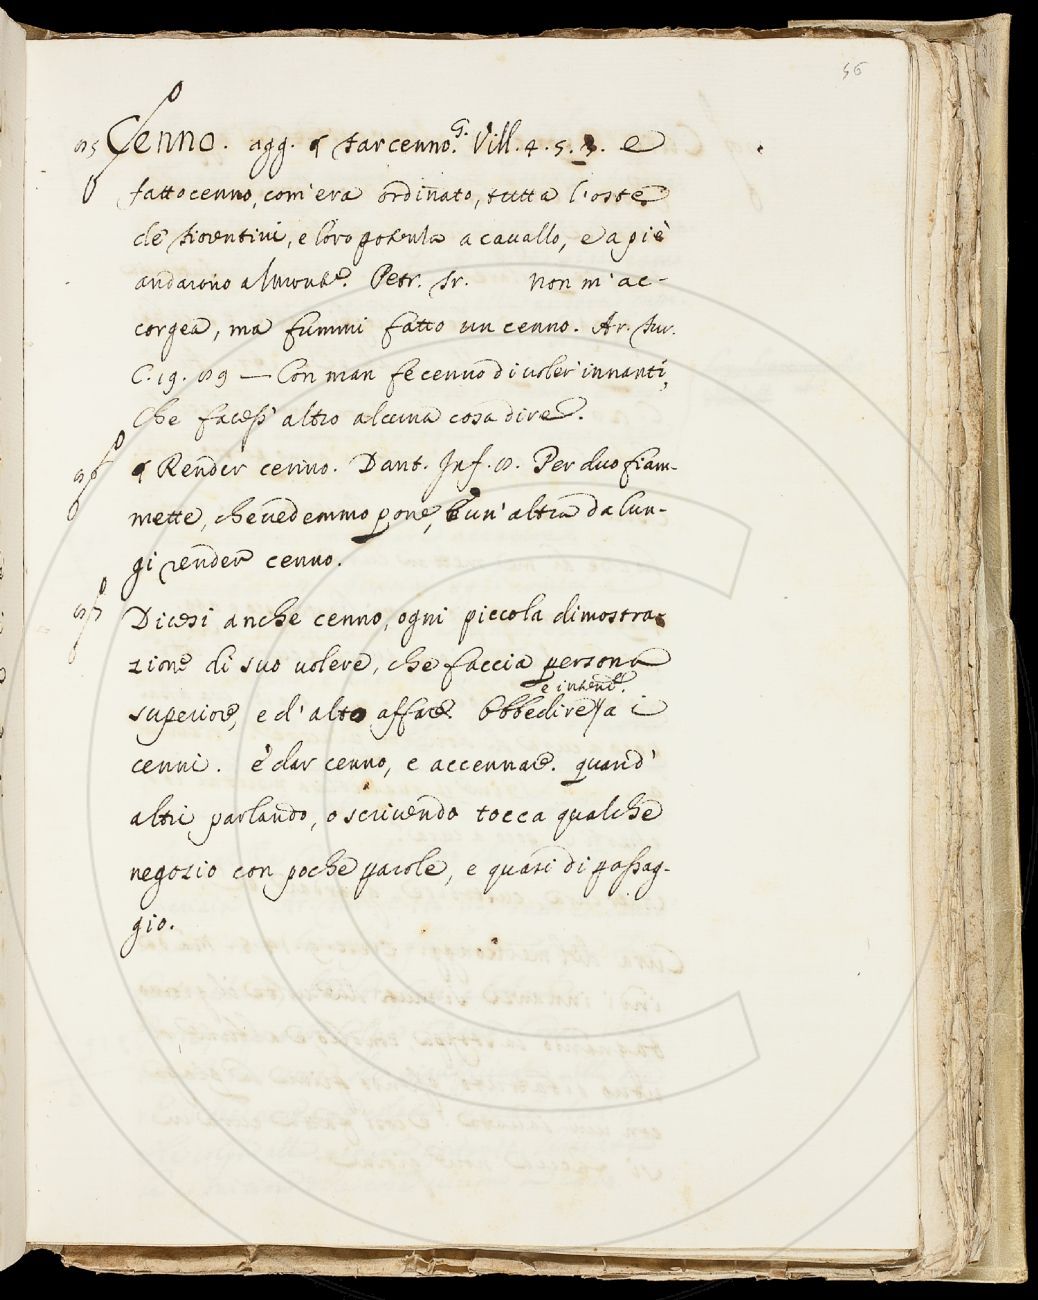 56
Cenno. agg. ¶ far cenno. G. Vill. 4. 5. 3. e
fatto cenno, com'era ordinato, tutta l'oste
de' fiorentini, e loro potenza a cauallo, e a piè
andarono al monte. Petr. fr. Non m'ac-
corgea, ma fummi fatto un cenno. Ar. fur.
C. 19. 89 — Con man fe cenno di uoler innanti,
Che facess' altro alcuna cosa dire.
¶ Render cenno. Dant. Inf. 8. Per duo fiam-
mette, che uedemmo pone, E un' altra da lun-
gi render cenno.
Dicesi anche cenno, ogni piccola dimostra-
zione di suo uolere, che faccia persona
superiore, e d'alto affare. Obbedire a i
cenni. è dar cenno, e accennare. quand'
altri parlando, o scriuendo tocca qualche
negozio con poche parole, e quasi di passag-
gio.